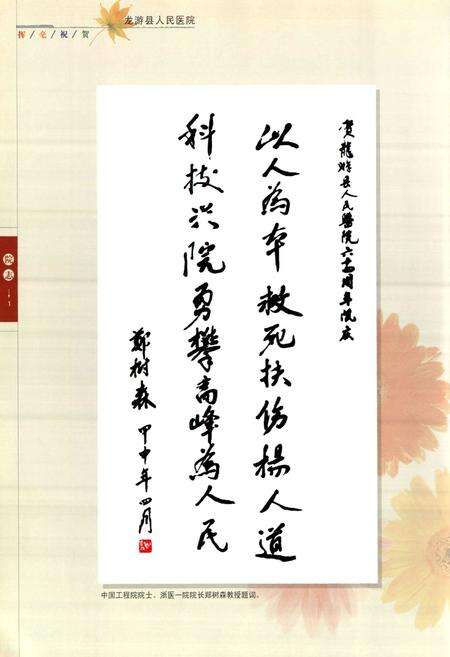 龙游县人民医院
挥/毫/祝/贺
院志
贺龍游县人民醫院六十周年院庆
以人為本救死扶伤楊人道
科技兴院勇攀高峰為人民
鄭树森 甲申年四月
中国工程院院士、浙医一院院长郑树森教授题词。